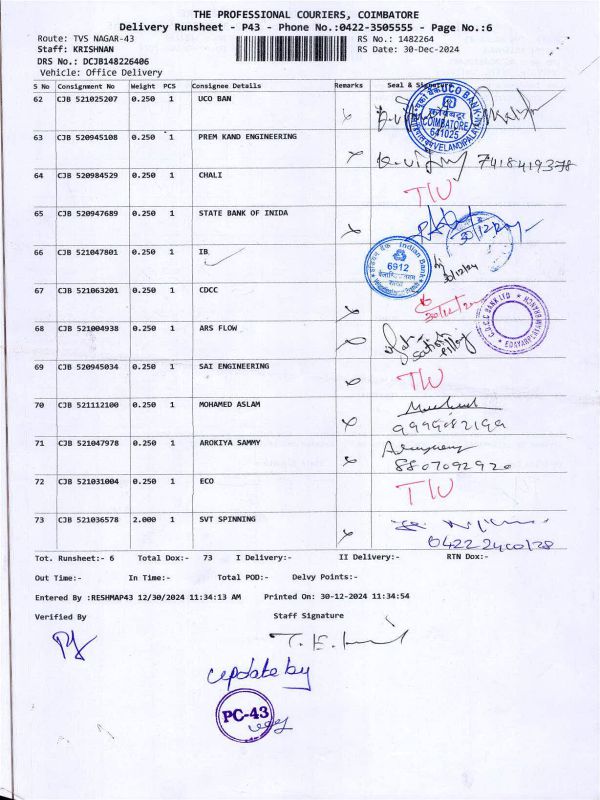 THE PROFESSIONAL COURIERS, COIMBATORE
Delivery Runsheet - P43 - Phone No.:0422-3505555 - Page No.:6
Route: TVS NAGAR-43
RS No.: 1482264
Staff: KRISHNAN
RS Date: 30-Dec-2024
DRS No.: DCJB148226406
Vehicle: Office Delivery
S No Consignment No Weight PCS Consignee Details Remarks Seal & Signature
62 CJB 521025207 0.250 1 UCO BAN
UCO BANK
COIMBATORE
641025
63 CJB 520945108 0.250 1 PREM KAND ENGINEERING
7418419378
64 CJB 520984529 0.250 1 CHALI
TIU
65 CJB 520947689 0.250 1 STATE BANK OF INIDA
30/12
66 CJB 521047801 0.250 1 IB
Indian Bank
6912
30/12/24
67 CJB 521063201 0.250 1 CDCC
30/12/24
C.D.C.C BANK LTD
68 CJB 521004938 0.250 1 ARS FLOW
69 CJB 520945034 0.250 1 SAI ENGINEERING
TIU
70 CJB 521112100 0.250 1 MOHAMED ASLAM
71 CJB 521047978 0.250 1 AROKIYA SAMMY
8807092920
72 CJB 521031004 0.250 1 ECO
TIU
73 CJB 521036578 2.000 1 SVT SPINNING
Tot. Runsheet:- 6 Total Dox:- 73 I Delivery:- II Delivery:- RTN Dox:-
Out Time:- In Time:- Total POD:- Delvy Points:-
Entered By :RESHMAP43 12/30/2024 11:34:13 AM Printed On: 30-12-2024 11:34:54
Verified By Staff Signature
update by
PC-43